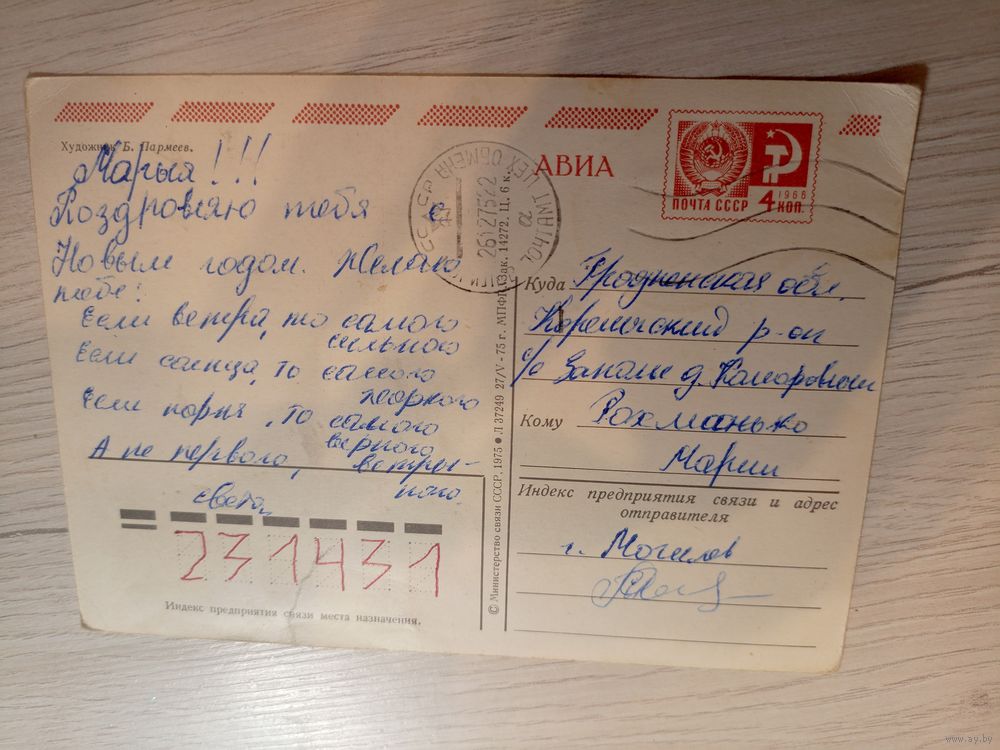 Художник Б. Пармеев.
Марыя!!!
Поздровляю тебя с
Новым годом. Желаю
тебе:
Если ветра, то самого
сильного
Если солнца, то самого
жаркого
Если парня, то самого
верного
А не первого, ветрен-
ного.
Света
231431
Индекс предприятия связи места назначения.
© Министерство связи СССР. 1975 • Л 37249 27/V - 75 г. МПФГ. Зак. 14272. Ц. 6 к.
АВИА
ПОЧТА СССР
1966
4 КОП
ПОЧТАМТ ЦЕХ ОБМЕНА
Куда Гродненская обл.
Кореличский р-он
с/о
Кому Рохманько
Марии
Индекс предприятия связи и адрес
отправителя
г. Могилев
www.ay.by